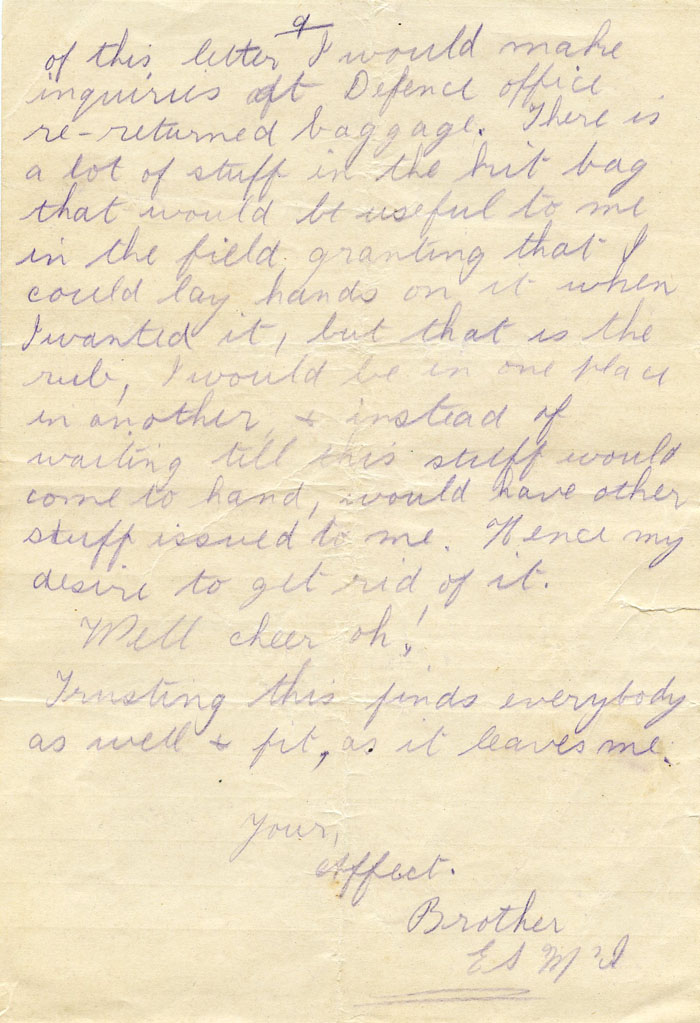 9
of this letter I would make
inquiries at Defence office
re-returned baggage. There is
a lot of stuff in the kit bag
that would be useful to me
in the field granting that I
could lay hands on it when
I wanted it, but that is the
rub, I would be in one place
in another, & instead of
waiting till this stuff would
come to hand, would have other
stuff issued to me. Hence my
desire to get rid of it.
Well cheer oh!
Trusting this finds everybody
as well & fit, as it leaves me.
Your,
Affect.
Brother